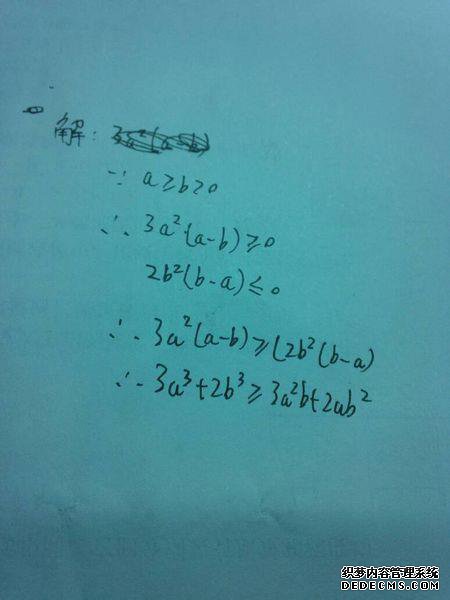 解：
∵ a≥b>0
∴ 3a²(a-b)≥0
2b²(b-a)≤0
∴ 3a²(a-b)≥(2b²(b-a)
∴ 3a³+2b³≥3a²b+2ab²
织梦内容管理系统
DEDECMS.COM